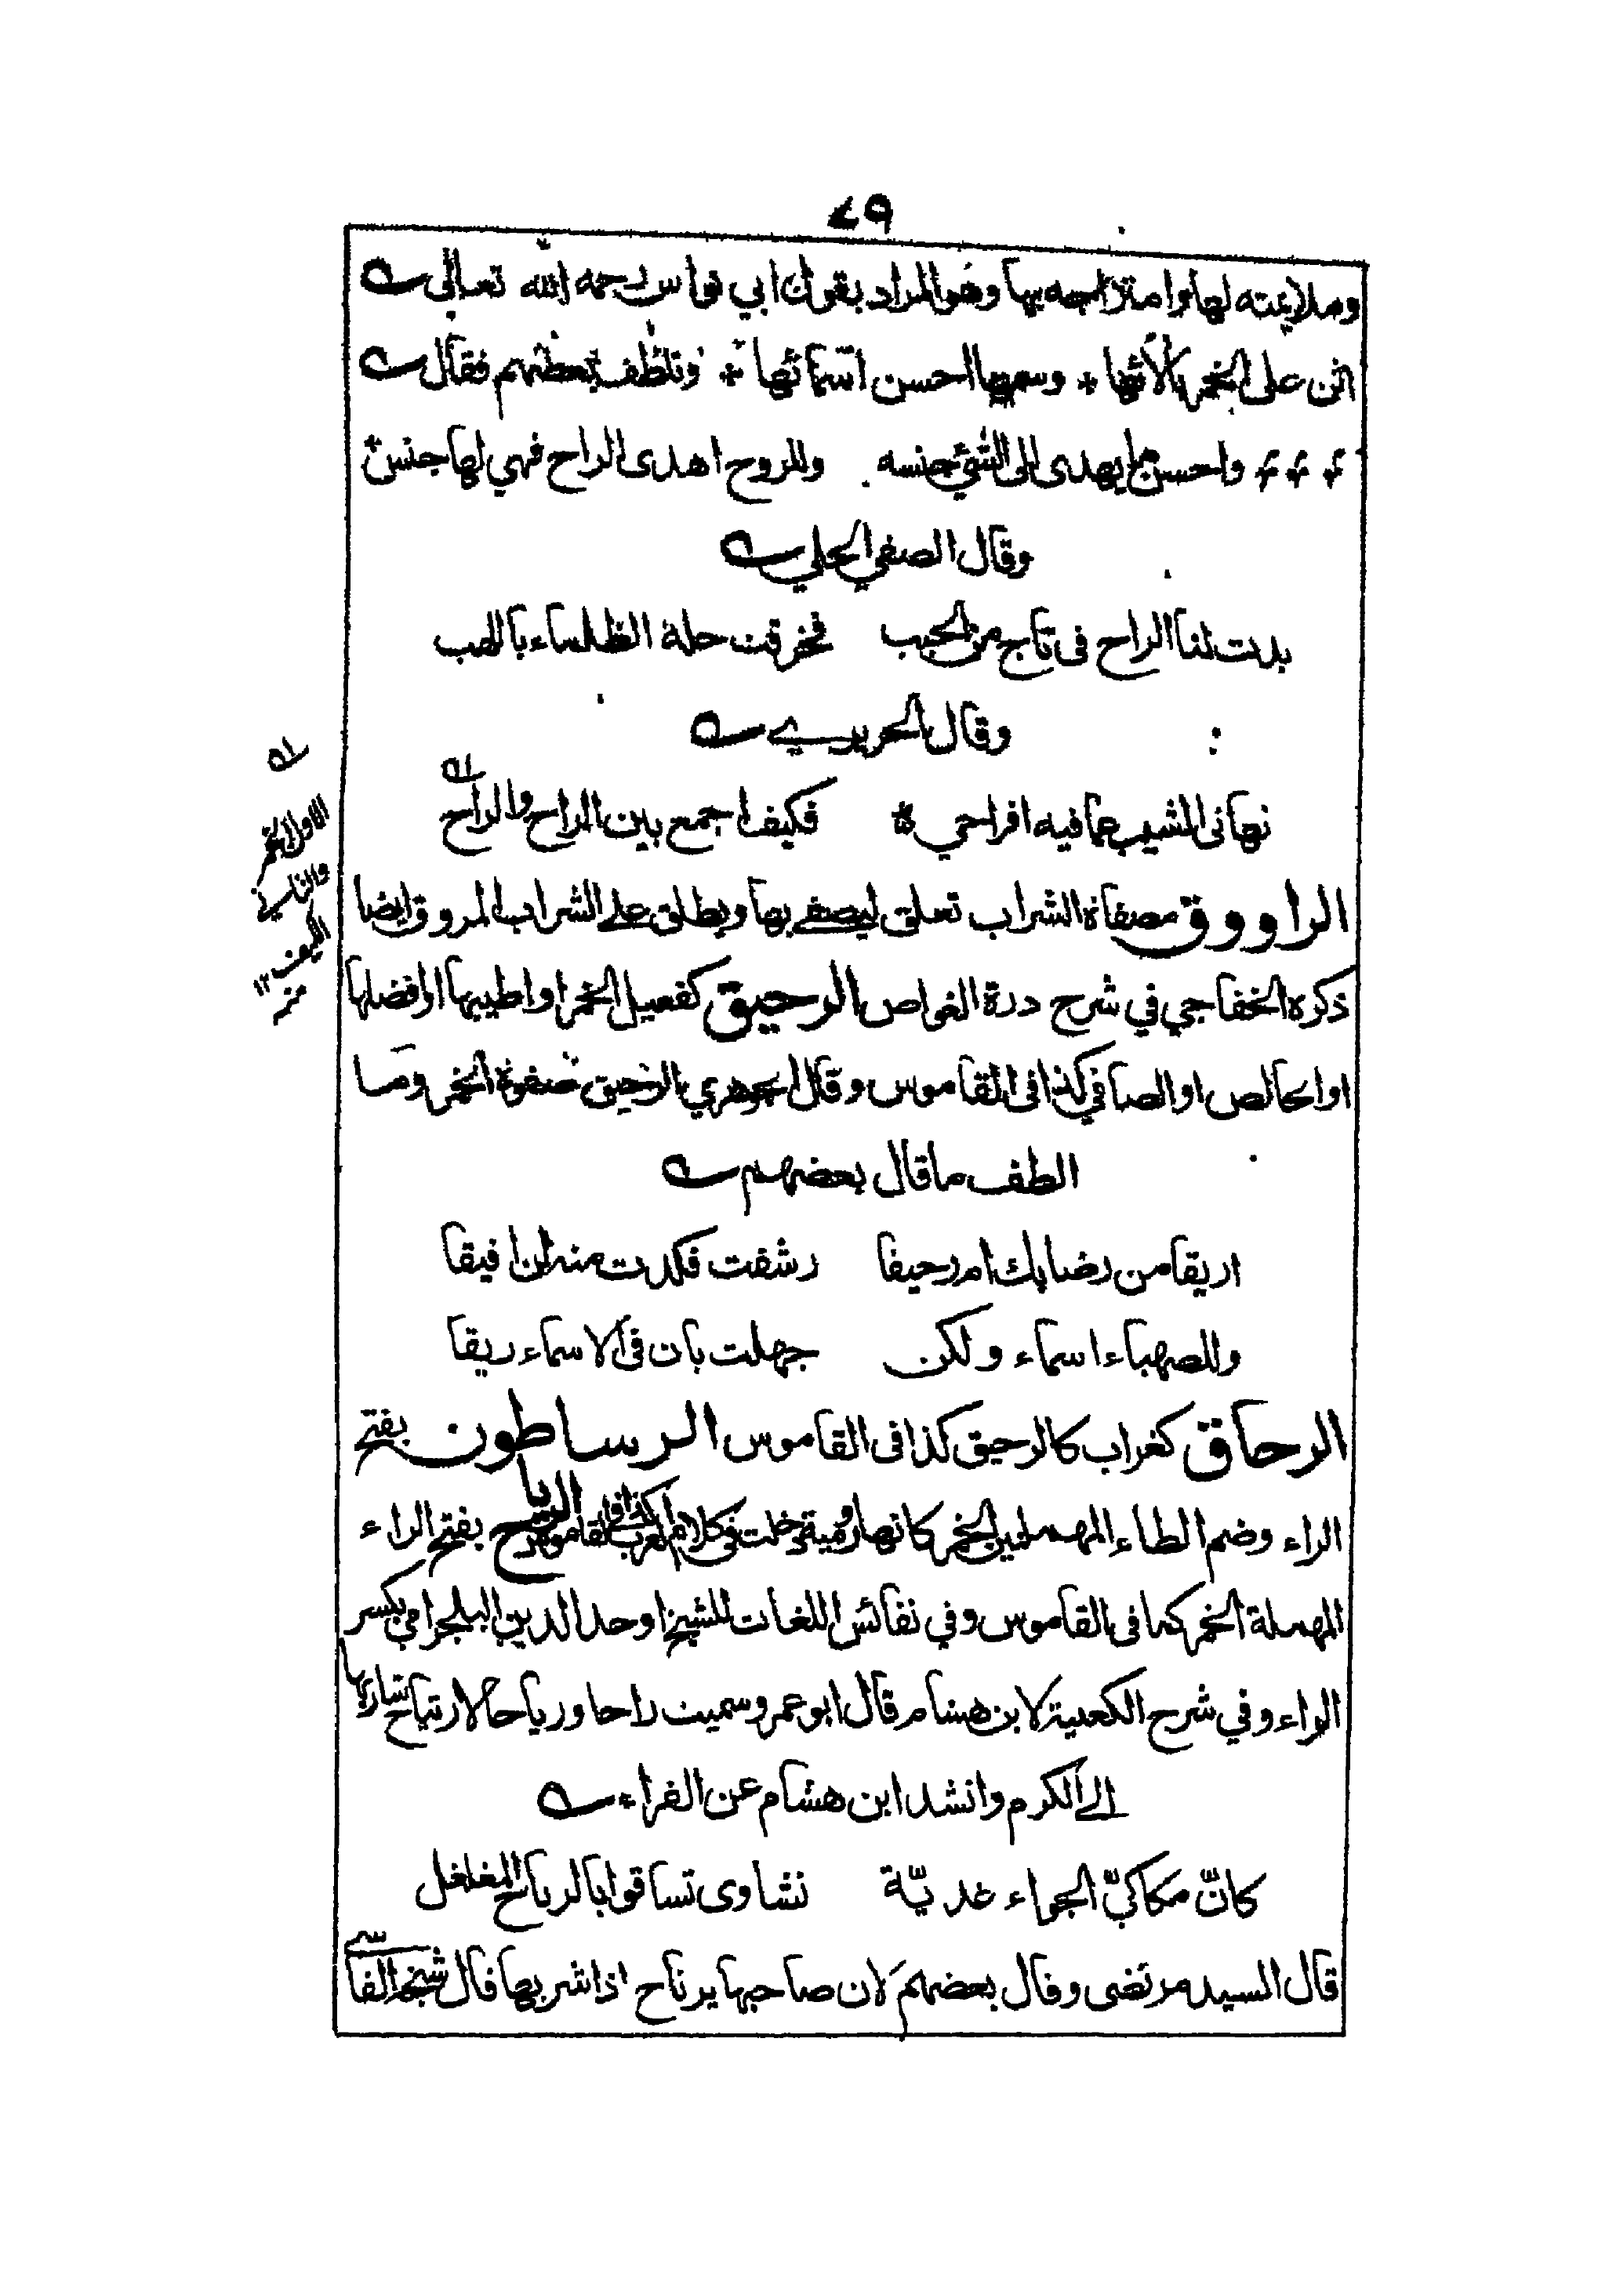 ٧٩
وملايمته لها وامتزاجه بها وهو المراد بقول ابي نواس رحمه الله تعالى
اثن على الخمر بآلائها * وسمها احسن اسمائها * وتلطف بعضهم فقال
واحسن ما يهدى الى الشئ جنسه وللروح اهدى الراح فهي لها جنس
وقال الصفي الحلي
بدت لنا الراح فى تاج من الحبب فخرقت حلة الظلماء باللهب
وقال الحريري
نهانى المشيب عما فيه افراحي فكيف اجمع بين الراح والراح
الراووق مصفاة الشراب تعلق ليصفے بها ويطلق علے الشراب المروق ايضا
ذكره الخفاجي في شرح درة الغواص الرحيق كفعيل الخمر او اطيبها او افضلها
او الخالص او الصافي كذا فى القاموس وقال الجوهري الرحيق صفوة الخمر وما
الطف ما قال بعضهم
اريقا من رضابك ام رحيقا رشفت فكدت منه ان افيقا
وللصهباء اسماء ولكن جهلت بان فى الاسماء ريقا
الرحاق كغراب كالرحيق كذا فى القاموس الرساطون بفتح
الراء وضم الطاء المهملتين الخمر كانها رومية دخلت في كلام العرب كذا فى القاموس الرياح بفتح الراء
المهملة الخمر كما فى القاموس وفي نفائس اللغات للشيخ اوحد الدين البلجرامي بكسر
الراء وفي شرح الكعبية لابن هشام قال ابو عمرو سميت راحا ورياحا لارتياح شاربها
الے الكرم وانشد ابن هشام عن الفراء
كانّ مكاكيّ الجواء غديّة نشاوى تساقوا بالرياح المغلغل
قال السيد مرتضى وقال بعضهم لان صاحبها يرتاح اذا شربها قال شيخه الفاسے